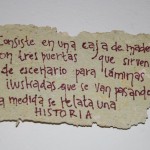 Consiste en una caja de made
on tres puertas que sirven
de escenario para láminas
ilustradas que se van pasando
a medida se relata una
HISTORIA